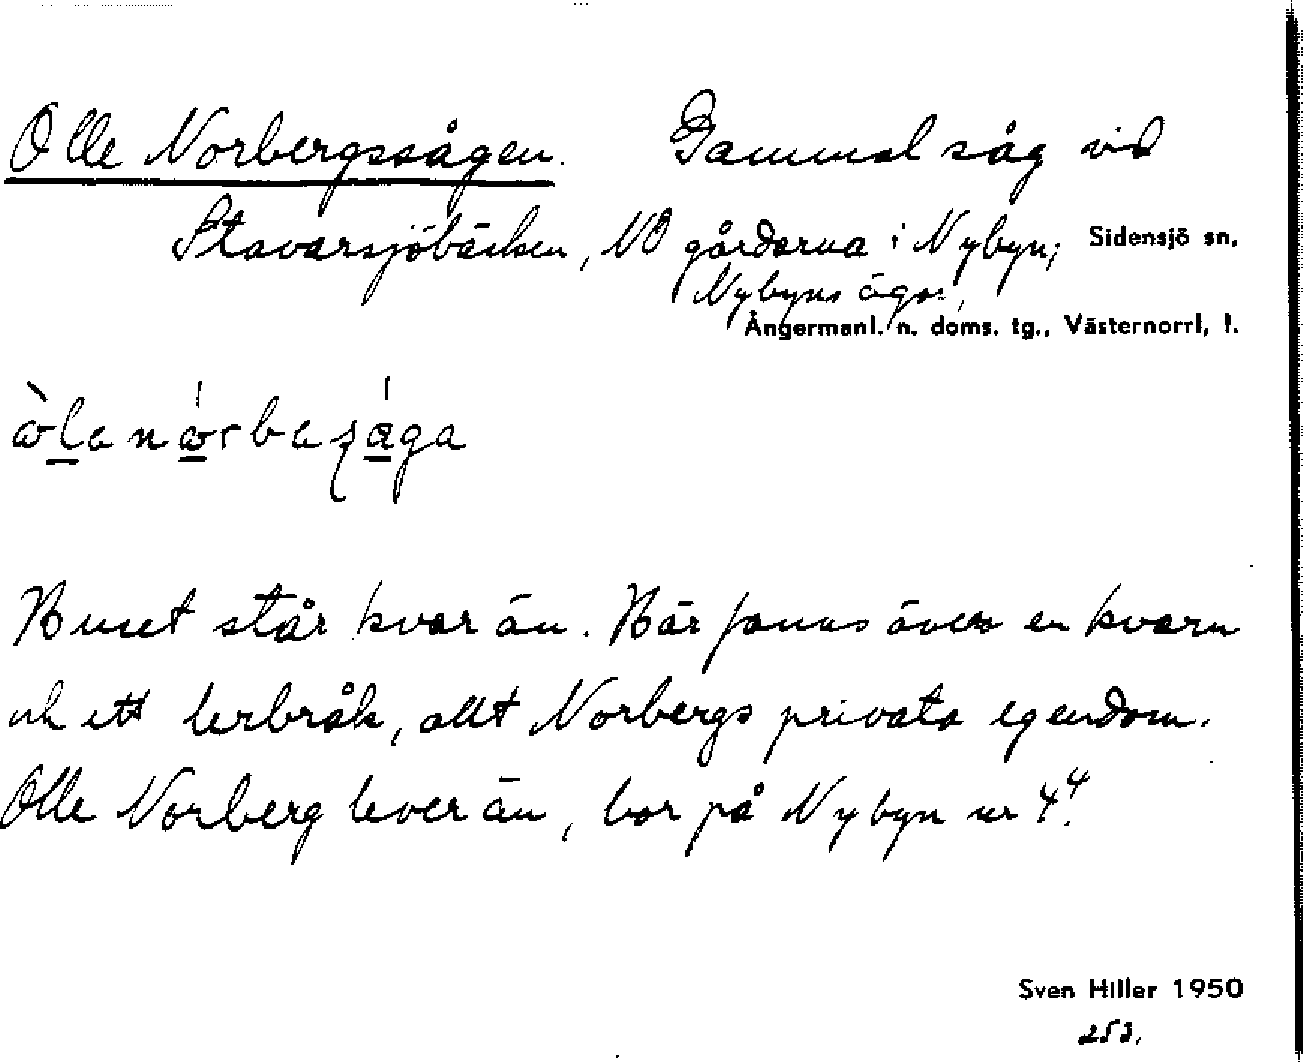 Olle Norbergssågen. Gammal såg vid
Stavarsjöbäcken, NÖ gårdarna i Nybyn; Sidensjö sn.
Nybyns ägor,
Ångermanl. n. doms. tg., Västernorrl, l.
Huset står kvar än. Här fanns även en kvarn
och ett lerbråk, allt Norbergs privata egendom.
Olle Norberg lever än, bor på Nybyn nr 4⁴.
Sven Hiller 1950
253.